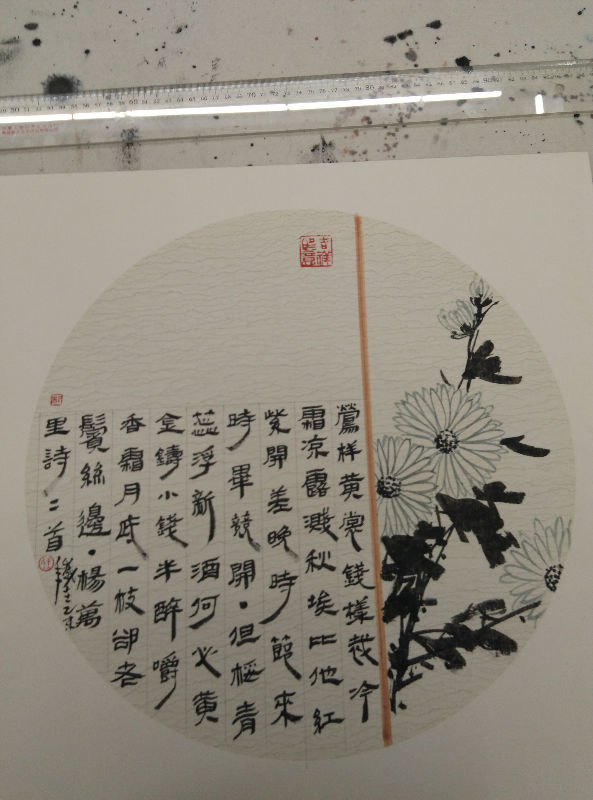 鶯样黄裳錢樣裁冷
霜凉露溅秋埃比他紅
紫開差晚時節來
時畢競開·但挼青
蕊浮新酒何必黄
金鑄小錢半醉嚼
香霜月底一枝卻老
鬢絲邊·楊萬
里詩二首